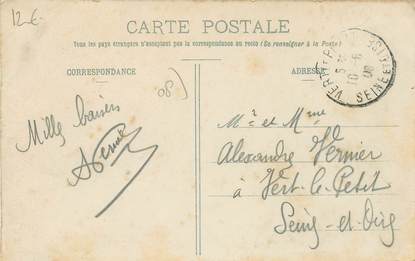 12-€
CARTE POSTALE
Tous les pays étrangers n'acceptant pas la correspondance au recto (Se renseigner à la Poste)
CORRESPONDANCE
ADRESSE
08
Mille baisers
Mr et Mme
Alexandre Vernier
à Vert-le-Petit
Seine-et-Oise